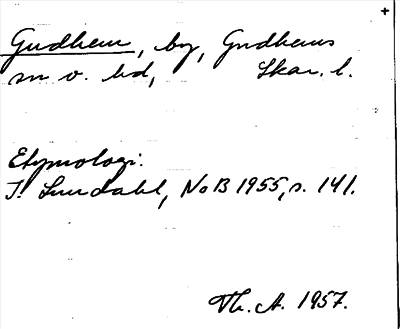 Gudhem, by, Gudhems
sn o. hd, Skar. l.
Etymologi:
I. Lundahl, NoB 1955, s. 141.
Th. A. 1957.